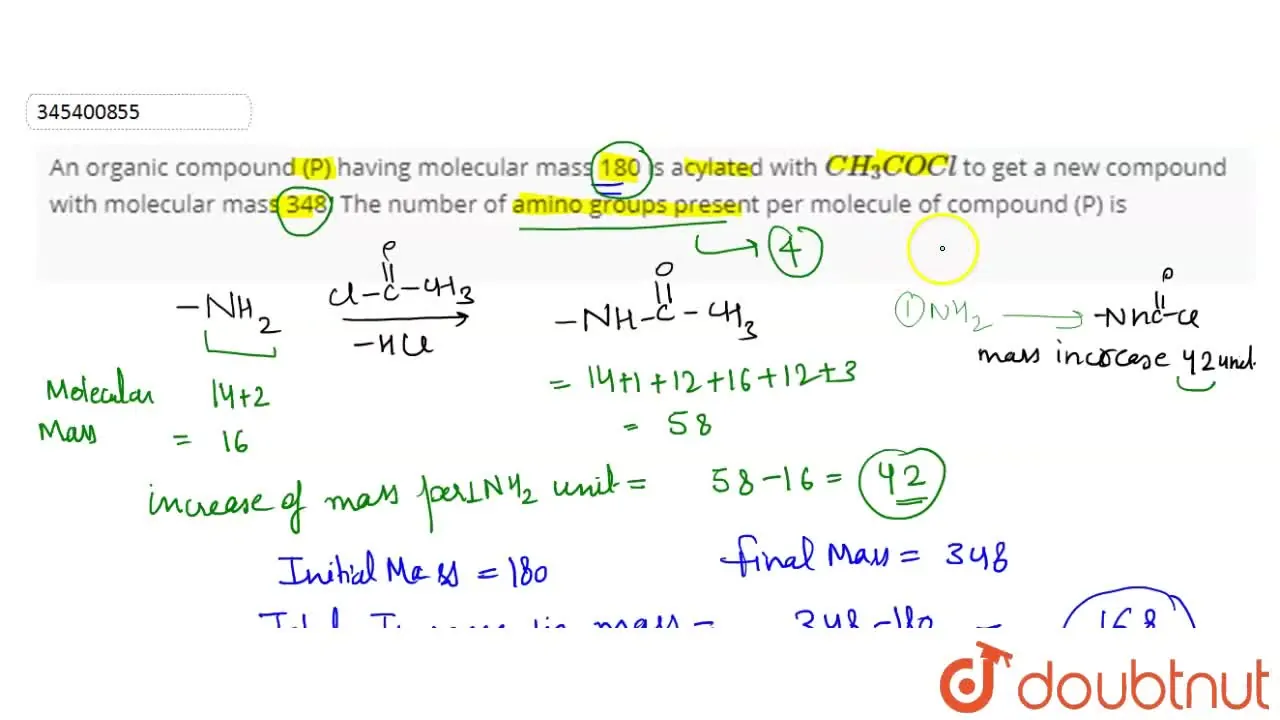 345400855
An organic compound (P) having molecular mass 180 is acylated with CH₃COCl to get a new compound
with molecular mass 348. The number of amino groups present per molecule of compound (P) is
4
-NH₂
Cl-C-CH₃
-HCl
O
-NH-C-CH₃
① NH₂ → -NHC-Cl
mass increase 42 unit.
Molecular Mass
14+2
= 16
= 14+1+12+16+12+3
= 58
increase of mass per 1NH₂ unit = 58-16 = 42
Initial Mass = 180
final Mass = 348
Total Increase in mass = 348-180 = 168
doubtnut